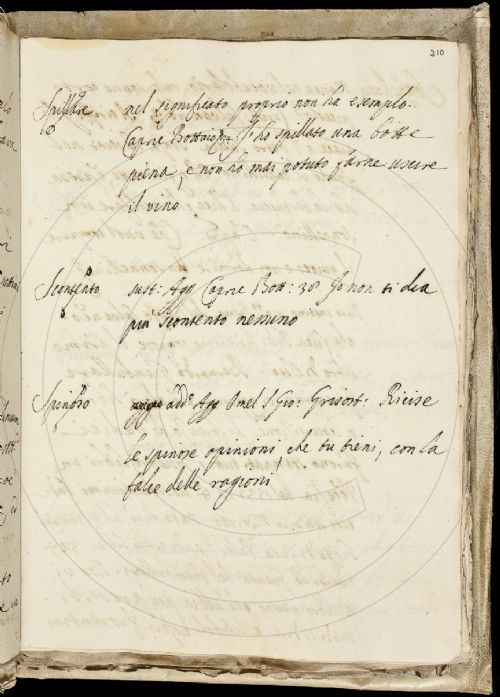 210
Spillare nel significato proprio non ha esempio.
Capric Bottaio Io ho spillato una botte
piena, e non ho mai potuto farne uscire
il vino
Scontento sust: Agg Capric Bott: 38 Io non ti dia
più scontento nessuno
Spinoso add. Agg Omel S Gio: Grisost: Ricise
le spinose opinioni che tu tieni, con la
falce delle ragioni